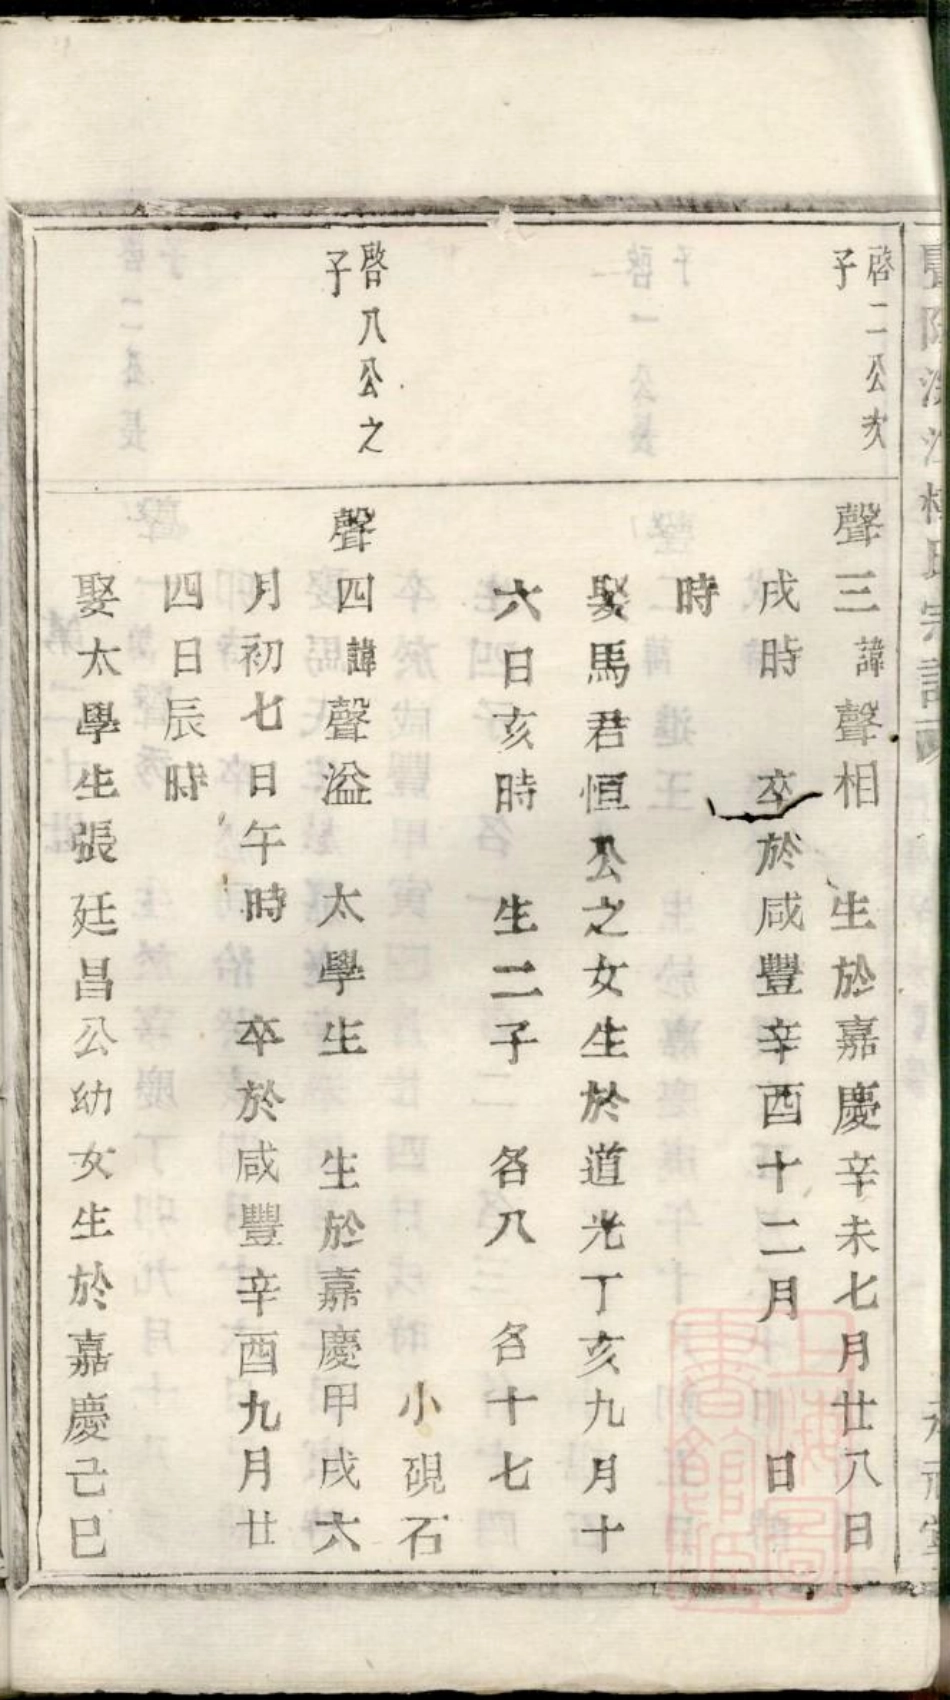 啓二公次
子
聲三諱聲相 生於嘉慶辛未七月廿八日
戌時 卒於咸豐辛酉十二月 日
時
娶馬君恒公之女生於道光丁亥九月十
六日亥時 生二子 各八 各十七
小硯石
啓八公之
子
聲四諱聲溢 太學生 生於嘉慶甲戌六
月初七日午時 卒於咸豐辛酉九月廿
四日辰時
娶太學生張廷昌公幼女生於嘉慶己巳